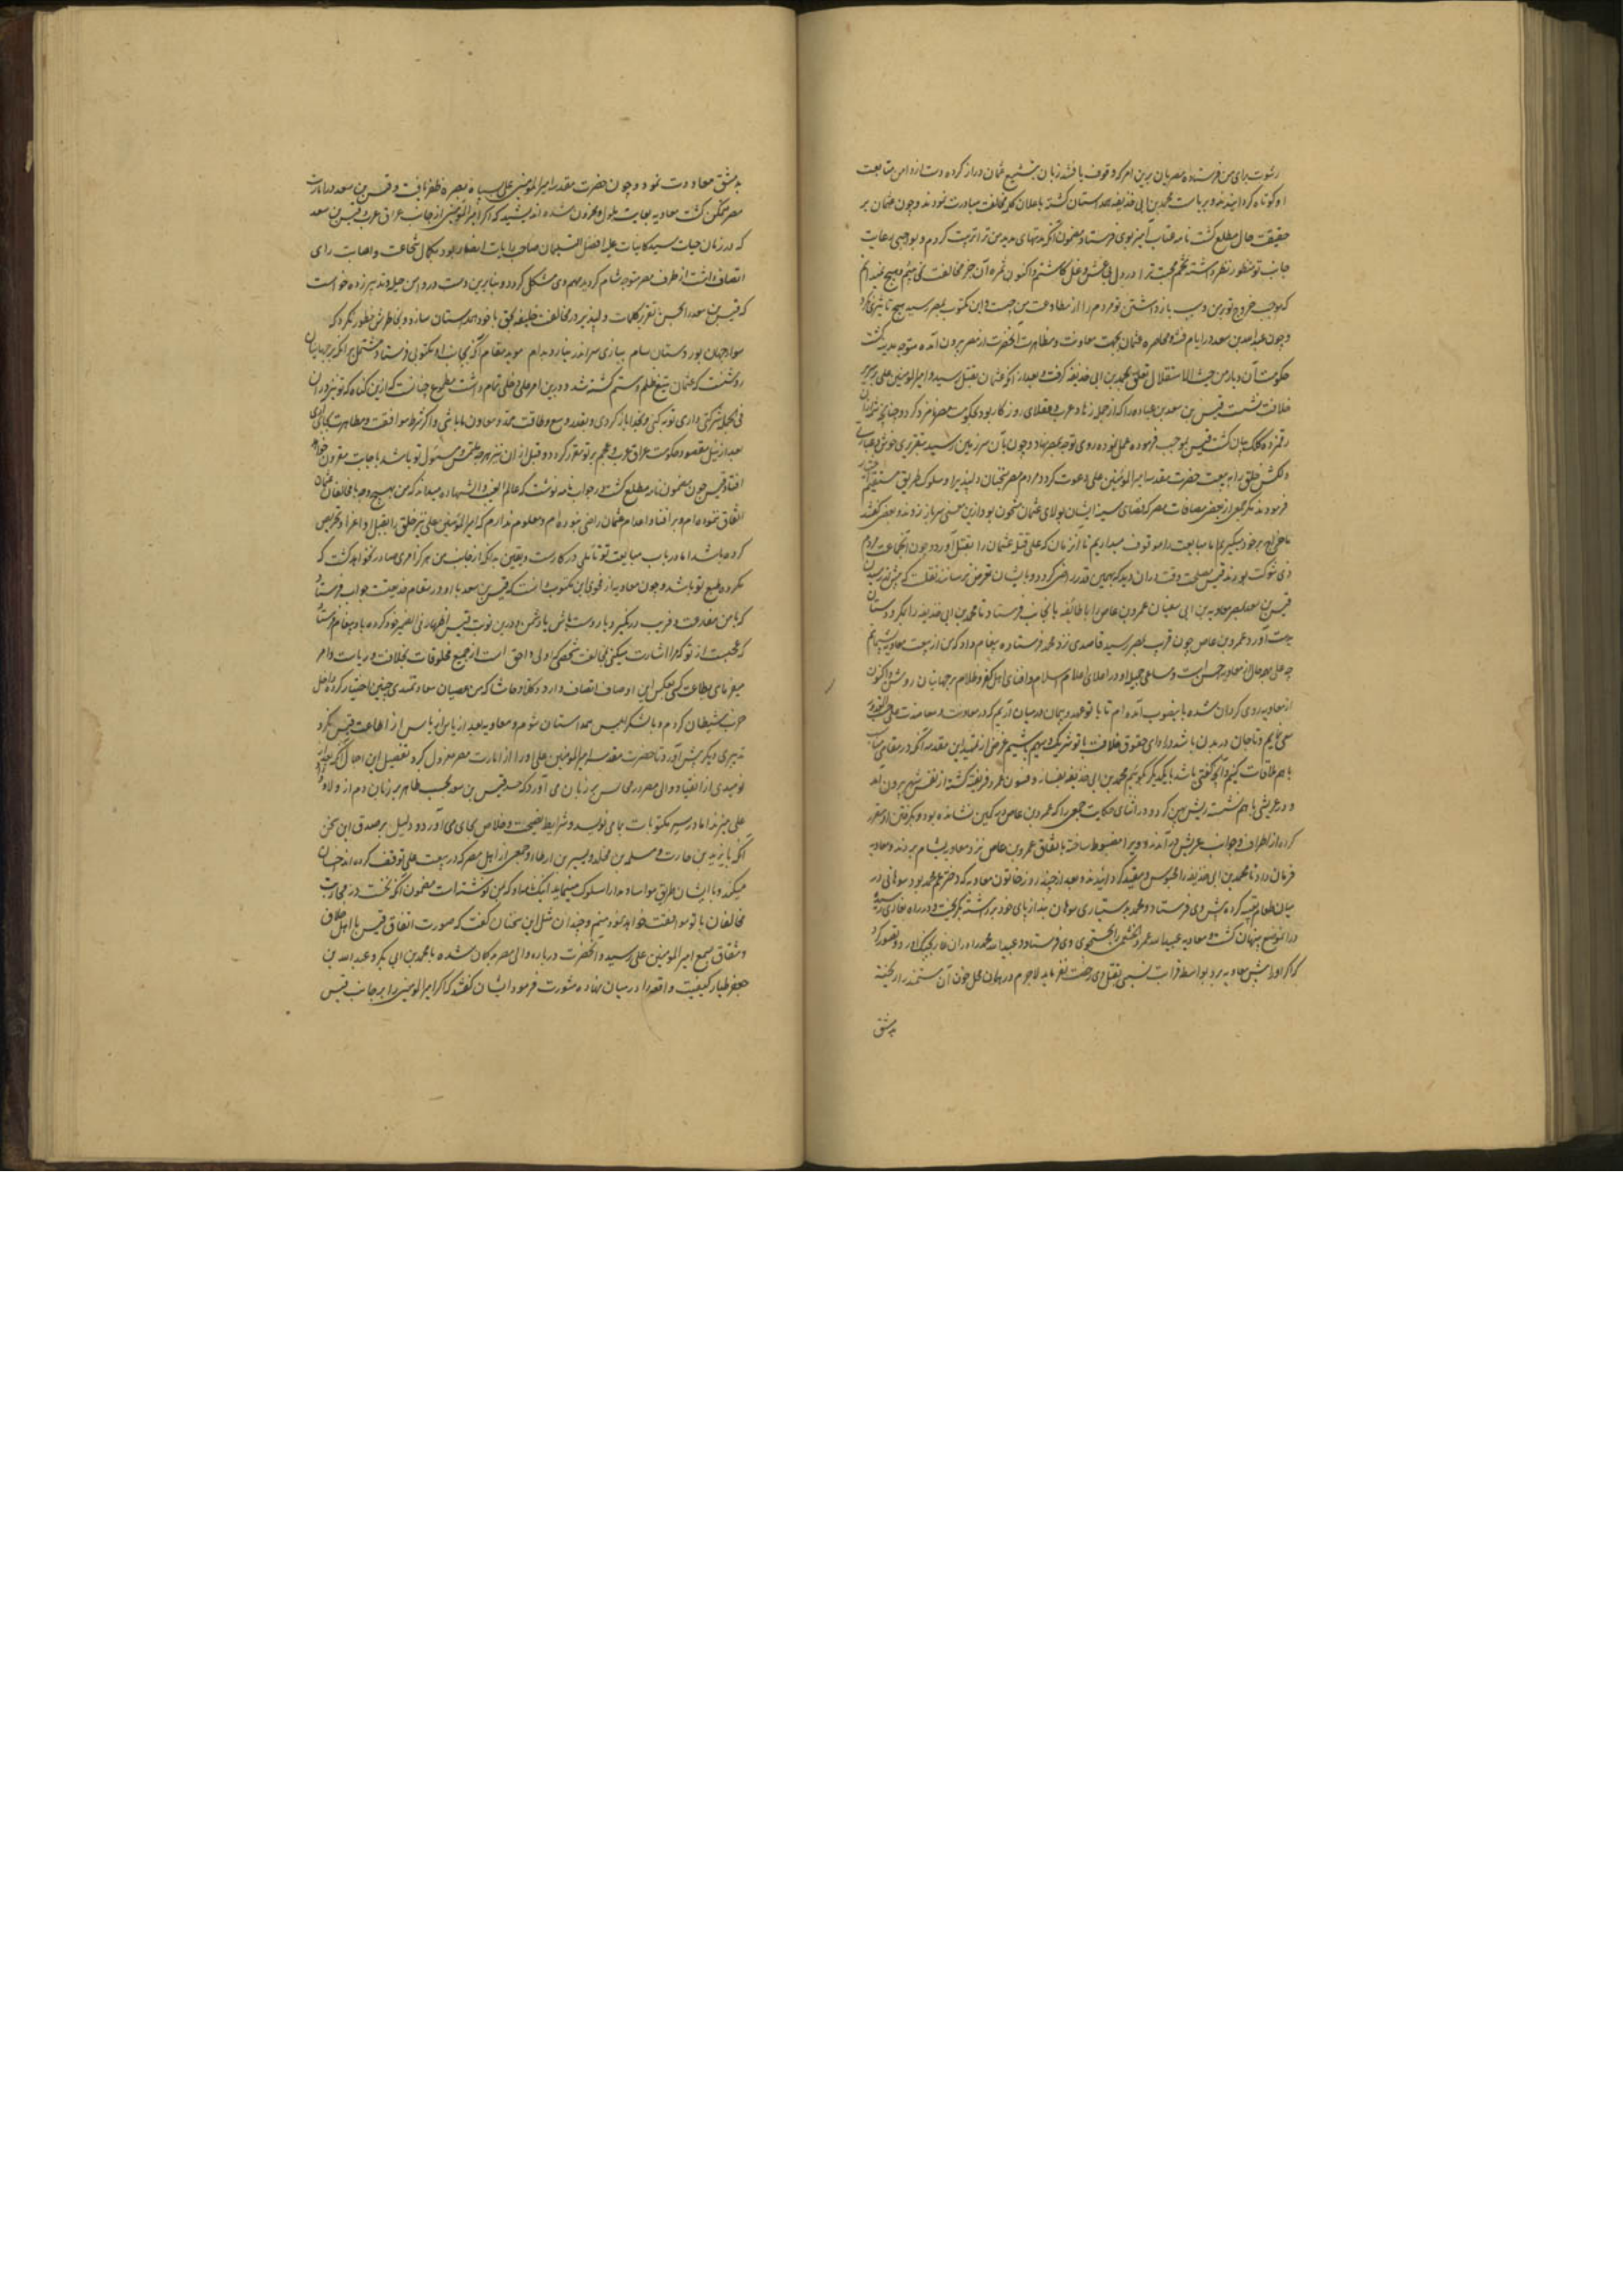 رشوت برای من فرستاده مصریان برین امر که وقوف یافتند زبان بتشنیع عثمان دراز کرده دست از دامن متابعت
او کوتاه گردانیدند و بریاست محمد بن ابی حذیفه همداستان گشته باعلان کلمه مخالفت مبادرت نمودند و چون عثمان بر
حقیقت حال مطلع گشت نامه عتاب آمیز بوی فرستاد مضمون آنکه مدتهای مدید من ترا تربیت کردم و بواجبی رعایت
جانب تو منظور نظر داشته تخم محبت ترا در دل بی غش و غل کاشتم و اکنون ثمره آن جز مخالفت نمی بینم و هیچ نمیدانم
که موجب خروج تو بر من و سبب بازداشتن تو مردم را از مطاوعت من چیست و این مکتوب بمصر رسید هیچ تاثیری نکرد
و چون عبدالله بن سعد در ایام فتنه و محاصره عثمان بجهت معاونت و مظاهرت آنحضرت از مصر بیرون آمده متوجه مدینه گشت
حکومت آن دیار من حیث الاستقلال تعلق بمحمد بن ابی حذیفه گرفت و بعد از آنکه عثمان بقتل رسید و امیرالمؤمنین علی بر سریر
خلافت نشست قیس بن سعد بن عباده را که از جمله زهاد عرب و عقلای روزگار بود بحکومت مصر نامزد کرد و چنانچه
رقمزده کلک بیان گشت قیس بموجب فرموده عمل نموده روی توجه بمصر نهاد و چون بآن سرزمین رسید بتقریری خوش و عباراتی
دلکش خلق را به بیعت حضرت مقدسه امیرالمؤمنین علی دعوت کرد و مردم مصر سخنان دلپذیر او سلوک طریق مستقیم
فرمودند مگر جمعی از بعضی مضافات مصر که فضای سینه ایشان بولای عثمان مشحون بود ازین معنی سر باز زدند و بعضی گفتند
ما خراج بر خود میگیریم اما مبایعت را موقوف میداریم تا آنزمان که علی قتله عثمان را بقتل آورد و چون آنجماعت مردم
ذی شوکت بودند قیس مصلحت وقت در آن دید که بهمین قدر راضی گردد و بایشان تعرض نرساند نقلست که پیش از رسیدن
قیس بن سعد بمصر معاویه بن ابی سفیان عمرو بن عاص را با طایفه بآنجانب فرستاد تا محمد بن ابی حذیفه را بمکر و دستان
بدست آورد عمرو بن عاص چون قریب بمصر رسید قاصدی نزد محمد فرستاده پیغام داد که من از بیعت معاویه پشیمانم
چه علی بهمه حال از معاویه احسن است و مساعی جمیله او در اعلای اعلام اسلام و افنای اهل کفر و ظلام بر جهانیان روشن و اکنون
از معاویه روی گردان شده باینصوب آمده ام تا با تو عهد و پیمان در میان آریم که در معاونت و معاضدت علی
سعی نمایم و تا جان در بدن باشد در ادای حقوق خلافت با تو شریک و سهیم باشیم غرض از تمهید این مقدمه آنکه در مقامی
با هم ملاقات کنیم و آنچه گفتنی باشد با یکدیگر بگوئیم محمد بن ابی حذیفه بفسانه و فسون عمرو فریفته گشته از نفس شهر بیرون آمد
و در عریشی با هم نشست ریش پهن کرد و در اثنای حکایت جمعی را که عمرو بن عاص در کمین نشانده بود و بگرفتن او مقرر
کرده از اطراف و جوانب عریش درآمدند و ویرا مضبوط ساخته باتفاق عمرو بن عاص نزد معاویه بشام بردند و معاویه
فرمان داد تا محمد بن ابی حذیفه را محبوس و مقید گردانیدند و بعد از چند روز خاتون معاویه که دختر عم محمد بود سوهانی در
میان طعام تعبیه کرده پیش وی فرستاد و محمد به دستیاری سوهان بند از پای خود برداشته بگریخت و در راه بغاری رسیده
در آنموضع پنهان گشت و معاویه عبیدالله عمرو خثعمی را بجستجوی وی فرستاد و عبیدالله محمد را در آن غار بچنگ آورد و تصور کرد
که اگر او را پیش معاویه برد بواسطه قرابت نسبی بقتل وی رخصت نفرماید لاجرم در همان محل خون آن مستمند را ریخته
بدمشق
بدمشق معاودت نمود و چون حضرت مقدسه امیرالمؤمنین علی بر سپاه بصره ظفر یافت و قیس بن سعد در امارت
مصر متمکن گشت معاویه بغایت ملول و محزون شده اندیشید که اگر امیرالمؤمنین از جانب عراق عرب و قیس بن سعد
که در زمان حیات سید کاینات علیه افضل التسلیمات صاحب رایات انصار بود و بکمال شجاعت و اصابت رای
اتصاف داشت از طرف مصر متوجه شام گردد مهم وی مشکل گردد و بنابرین دست در دامن حیل و تدبیر زده خواست
که قیس بن سعد را بحسن تقریر و کلمات دلپذیر در مخالفت خلیفه بحق با خود همداستان سازد و بخاطرش خطور نکرد که
سوار جهان پور دستان سام ببازی سر اندر نیارد بدام موید مقام آنکه بجانب او مکتوبی فرستاد مشتمل بر آنکه بر جهانیان
روشنست که عثمان بتیغ ظلم و ستم کشته شد و درین امر علی دخلی تمام داشت مطموع چنانست که ازین گناه که تو نیز در آن
فی الجمله شرکتی داری توبه کنی و بخدا باز گردی و بقدر وسع و طاقت ممد و معاون ما باشی و اگر شرط موافقت و مظاهرت بجای آری
بعد از نیل مقصود حکومت عراق عرب و عجم بر تو مقرر گردد و قبل از آن نیز هر چه ملتمس و مسئول تو باشد باجابت مقرون خواهد
افتاد قیس چون بمضمون نامه مطلع گشت در جواب نامه نوشت که عالم الغیب و الشهاده میداند که من بهیچ وجه با مخالفان عثمان
اتفاق ننموده ام و بر افنا و اعدام عثمان راضی نبوده ام و معلوم ندارم که امیرالمؤمنین علی نیز خلق را بقتل او اغرا و تحریص
کرده باشد اما در باب مبایعت تو تاملی در کار است و یقین بدانکه از جانب من هرگز امری صادر نخواهد گشت که
مکروه طبع تو باشد و چون معاویه از فحوای این مکتوب دانست که قیس بن سعد با او در مقام خدیعت جواب فرستاد
که با من مخادعت و فریب در نگیرد یا دوست باش یا دشمن و درین نوبت قیس اظهار ما فی الضمیر خود کرده باو پیغام فرستاد
که عجبست از تو که مرا اشارت میکنی بمخالفت شخصی که اولی و احق است از جمیع مخلوقات بخلافت و ریاست و امر
میفرمای بطاعت کسی که بعکس این اوصاف اتصاف دارد و کلا و حاشا که من عصیان سعادتمندی چنین اختیار کرده داخل
حزب شیطان گردم و با لشکر ابلیس همداستان شوم و معاویه بعد از یاس از اطاعت قیس مکر و
تدبیری دیگر پیش آورد تا حضرت مقدسه امیرالمؤمنین علی او را از امارت مصر معزول کرد و تفصیل این اجمال آنکه بعد از
نومیدی از انقیاد والی مصر در مجالس بر زبان می آورد که هر چند قیس بن سعد بحسب ظاهر بر زبان دم از ولای
علی میزند اما در سر مکتوبات بما می نویسد و شرایط نصیحت و اخلاص بجای می آورد و دلیل بر صدق این سخن
آنکه با یزید بن حارث و مسلمه بن مخلد و بسر بن ارطاه و جمعی از اهل مصر که در بیعت علی توقف کرده اند احسان
میکند و با ایشان طریق مواسا و مدارا سلوک مینماید اینک نامه او که بمن نوشته است مضمون آنکه بخت در محاربت
مخالفان با تو موافقت خواهد نمود میبینم و چندان مثل این سخنان گفت که صورت اتفاق قیس با اهل خلاف
و شقاق بسمع امیرالمؤمنین علی رسید و آنحضرت در باره والی مصر بدگمان شده با محمد بن ابی بکر و عبدالله بن
جعفر طیار کیفیت واقعه را در میان نهاده مشورت فرمود ایشان گفتند که اگر امیرالمؤمنین را بر جانب قیس